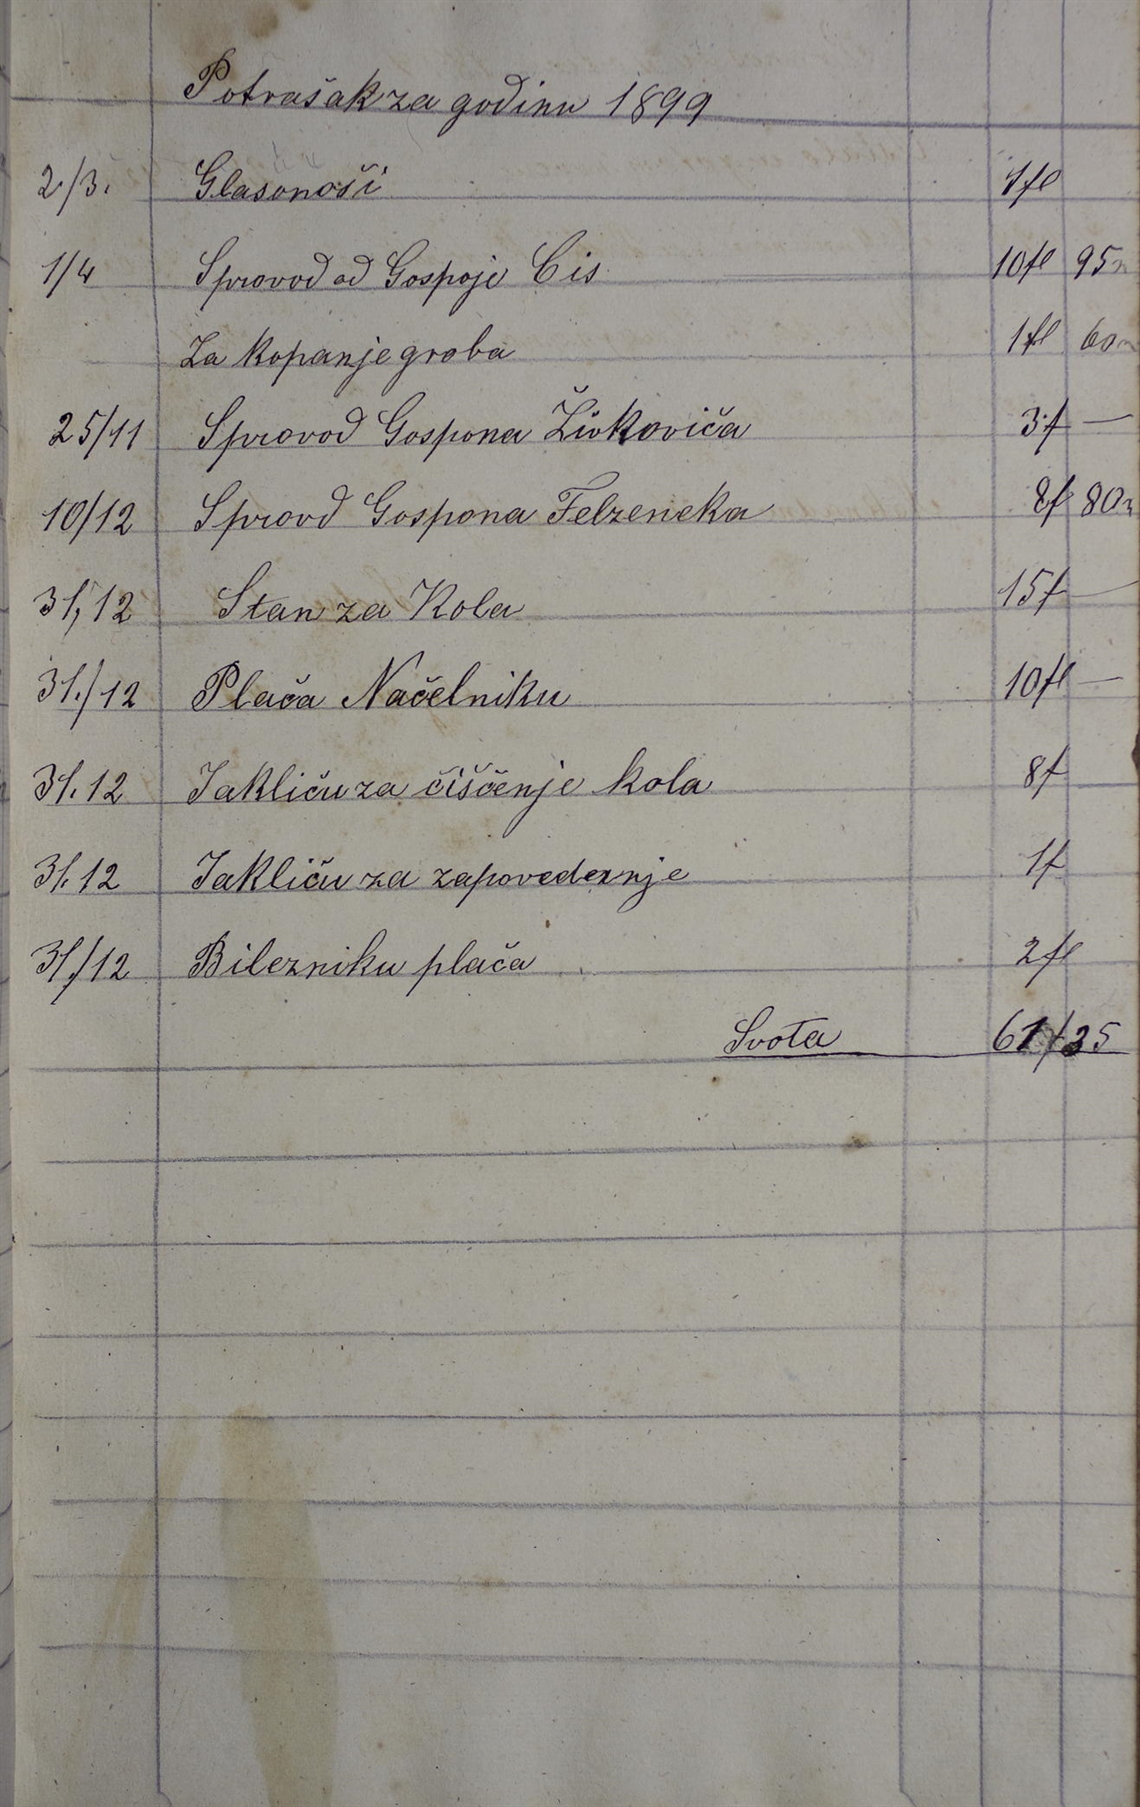 Potrašak za godinu 1899
2./3. Glasonoši 1fl
1/4 Sprovod od Gospoje Cis 10fl 95n
Za kopanje groba 1fl 60n
25/11 Sprovod Gospona Živkoviča 3f —
10/12 Sprovd Gospona Felzeneka 8f 80n
31,12 Stan za Kola 15f —
31./12 Plača Načelniku 10fl —
31.12 Jakliču za čiščenje kola 8f
31.12 Jakliču za 1f
31./12 Bilezniku plača 2fl
Svota 61f35